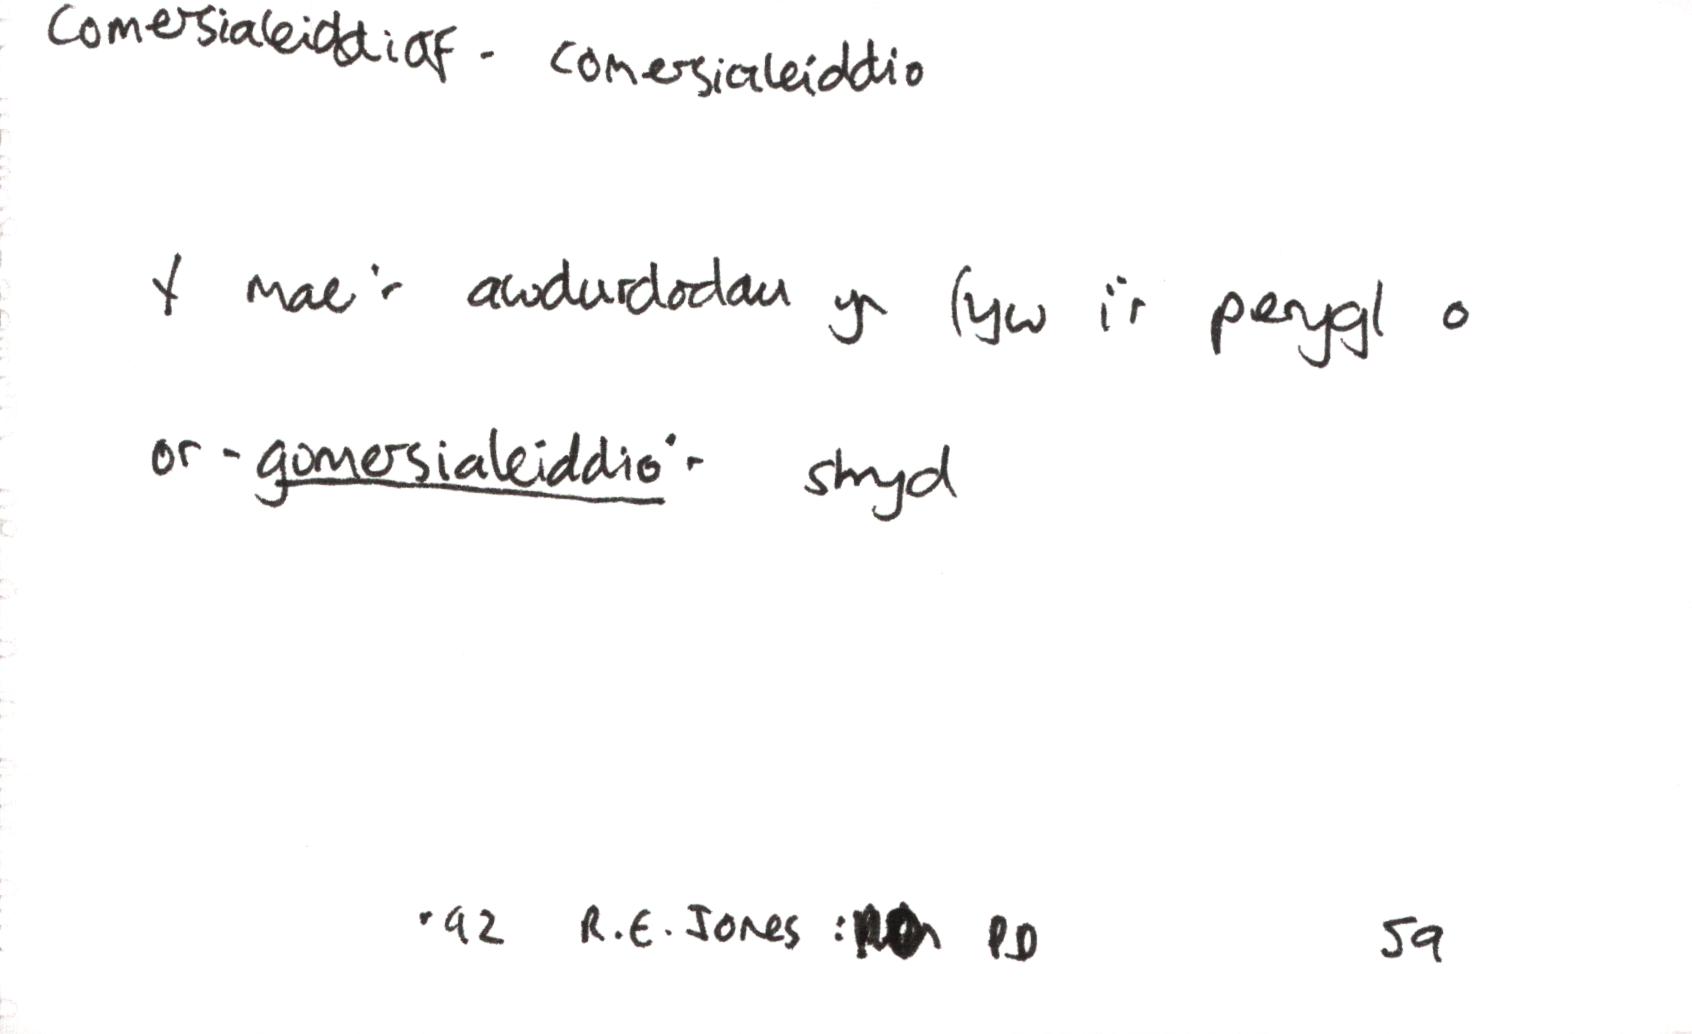 comersialeiddiaf - comersialeiddio
Y mae'r awdurdodau yn fyw i'r perygl o
or-gomersialeiddio'r stryd
'92 R.E. Jones : PD 59